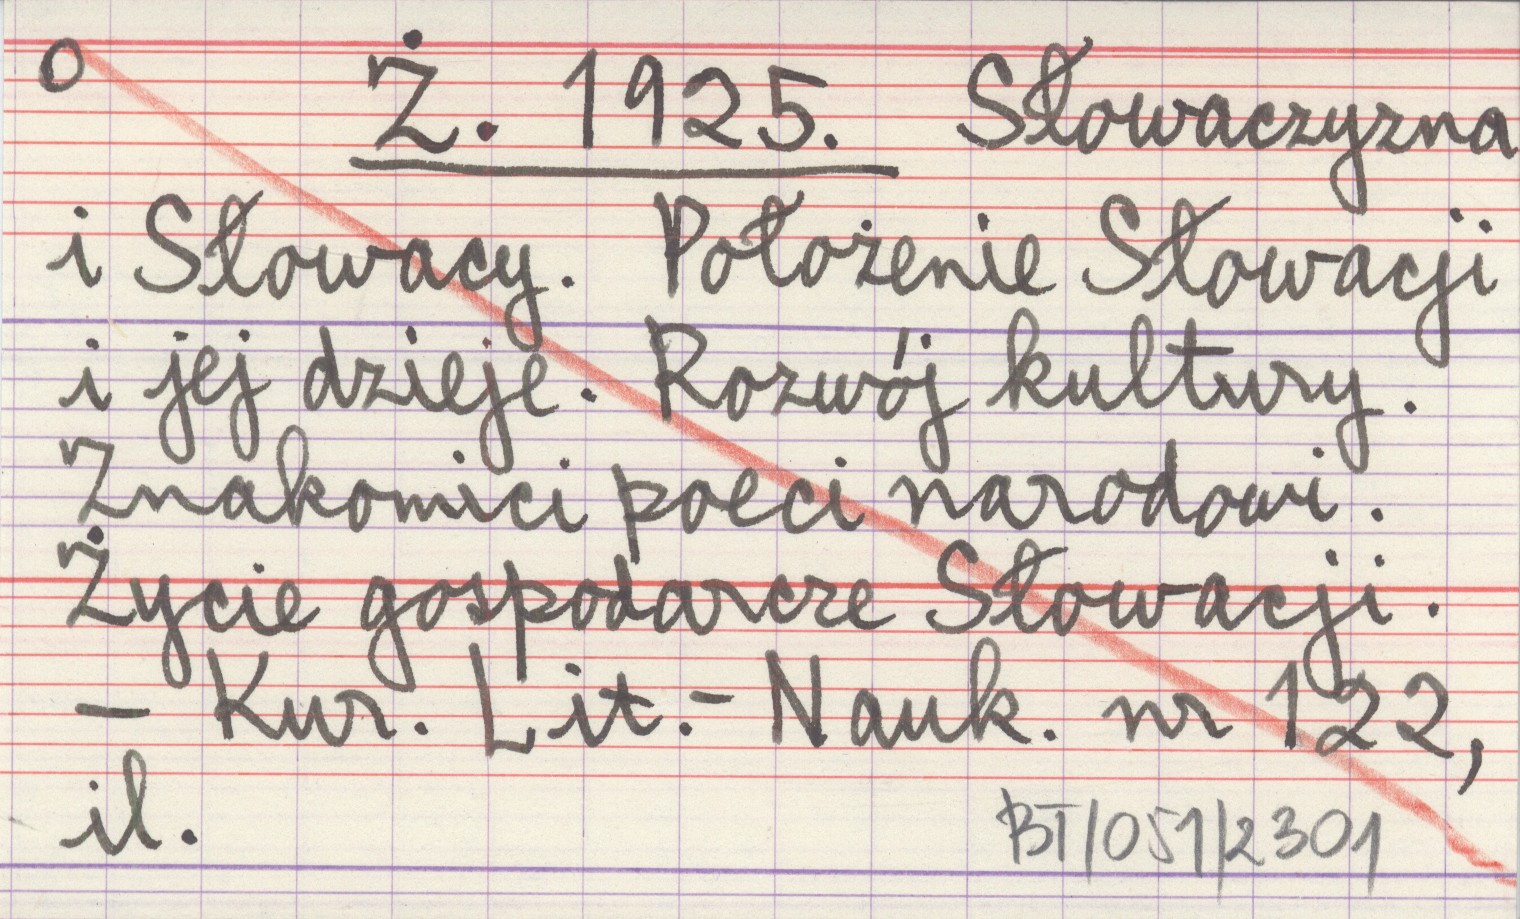 O Ż. 1925. Słowaczyzna
i Słowacy. Położenie Słowacji
i jej dzieje. Rozwój kultury.
Znakomici poeci narodowi.
Życie gospodarcze Słowacji.
– Kur. Lit.- Nauk. nr 122,
il.
BT/051/2301